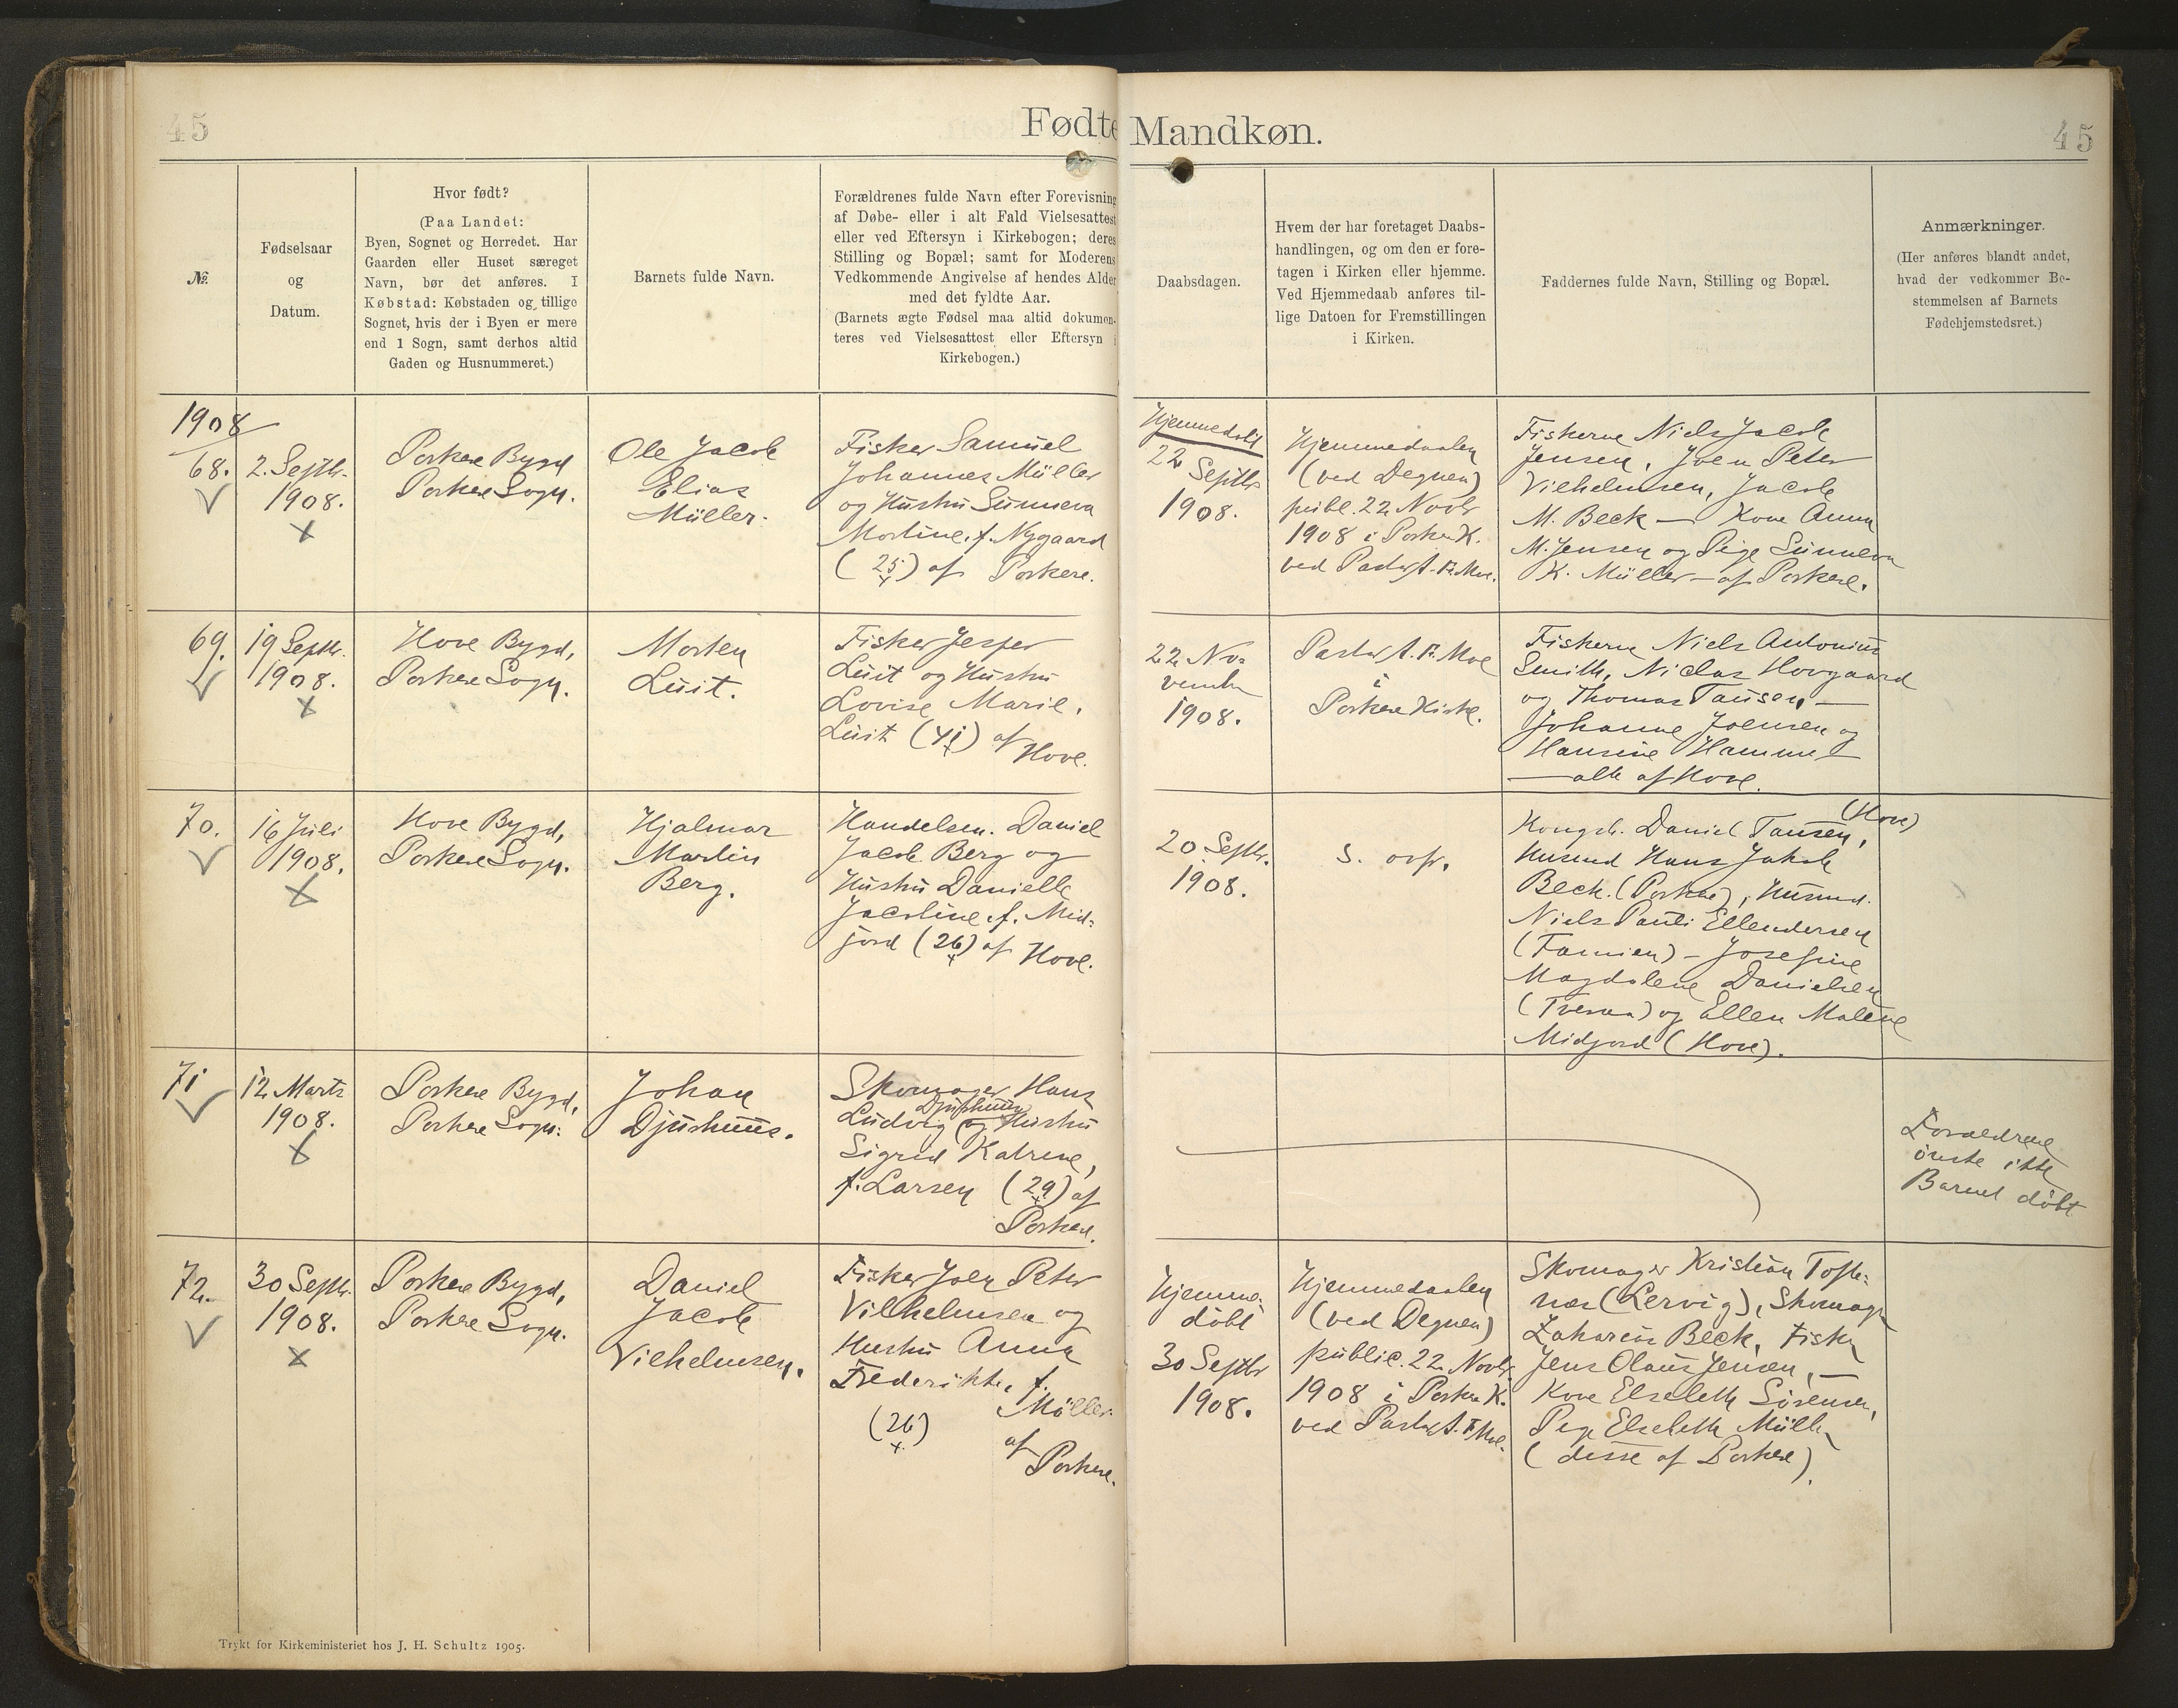 45
Fødte Mandkøn.
45
№
Fødselsaar
og
Datum.
Hvor født?
(Paa Landet:
Byen, Sognet og Herredet. Har
Gaarden eller Huset særeget
Navn, bør det anføres. I
Købstad: Købstaden og tillige
Sognet, hvis der i Byen er mere
end 1 Sogn, samt derhos altid
Gaden og Husnummeret.)
Barnets fulde Navn.
Forældrenes fulde Navn efter Forevisning
af Døbe- eller i alt Fald Vielsesattest
eller ved Eftersyn i Kirkebogen; deres
Stilling og Bopæl; samt for Moderens
Vedkommende Angivelse af hendes Alder
med det fyldte Aar.
(Barnets ægte Fødsel maa altid dokumen-
teres ved Vielsesattest eller Eftersyn i
Kirkebogen.)
Daabsdagen.
Hvem der har foretaget Daabs-
handlingen, og om den er fore-
tagen i Kirken eller hjemme.
Ved Hjemmedaab anføres til-
lige Datoen for Fremstillingen
i Kirken.
Faddernes fulde Navn, Stilling og Bopæl.
Anmærkninger.
(Her anføres blandt andet,
hvad der vedkommer Be-
stemmelsen af Barnets
Fødehjemstedsret.)
1908
68.
2. Septbr.
1908.
Porkere Bygd
Porkere Sogn.
Ole Jacob
Elias
Müller.
Fisker Samuel
Johannes Müller
og Hustru Sunneva
Morline, f. Nygaard
(25) af Porkere.
Hjemmedøbt
22 Septbr
1908.
Hjemmedaaben
(ved Degnen)
publ. 22 Novbr
1908 i Porkere K.
ved Pastor A. F. Moe.
Fiskerne Niels Jacob
Jensen, Joen Peter
Vilhelmsen, Jacob
M. Beck — Kone Anna
M. Jensen og Pige Sunneva
K. Müller — af Porkere.
69.
19 Septbr.
1908.
Hove Bygd,
Porkere Sogn.
Morten
Luit.
Fisker Jesper
Luit og Hustru
Lovise Marie,
Luit (41) af
Hove.
22 No-
vember
1908.
Pastor A. F. Moe
i
Porkere Kirke.
Fiskerne Niels Antonius
Smith, Niclas Hovgaard
og Thomas Tausen, —
Johanne Joensen og
Hansine Hammer
— alle af Hove.
70.
16 Juli
1908.
Hove Bygd,
Porkere Sogn.
Hjalmar
Martin
Berg.
Handelsm. Daniel
Jacob Berg og
Hustru Danielle
Jacobine, f. Mid-
jord (26) af Hove.
20 Septbr.
1908.
S. ovfr.
(Hove)
Kongsb. Daniel Tausen,
Husmd Hans Jakob
Beck. (Porkere), Husmd.
Niels Pauli Ellendersen
(Famien) – Josefine
Magdalene Danielsen
(Tveraa) og Ellen Malene
Midjord (Hove).
71
12 Marts
1908.
Porkere Bygd,
Porkere Sogn.
Johan
Djurhuus.
Skomager Hans
Djurhuus
Ludvig og Hustru
Sigrid Katrine,
f. Larsen (29) af
Porkere.
Forældrene
ønske ikke
Barnet døbt
72.
30 Septbr.
1908.
Porkere Bygd,
Porkere Sogn.
Daniel
Jacob
Vilhelmsen.
Fisker Joen Peter
Vilhelmsen og
Hustru Anna
Frederikke, f.
Müller
(26) af
Porkere.
Hjemme-
døbt
30 Septbr
1908.
Hjemmedaaben
(ved Degnen)
public. 22 Novbr
1908 i Porkere K.
ved Pastor A. F. Moe.
Skomager Kristian Tofte-
næs (Lervig), Skomager
Zakarias Beck, Fisker
Jens Olaus Jensen, —
Kone Elsebeth Sörensen,
Pige Elsebeth Müller
(disse af Porkere).
Trykt for Kirkeministeriet hos J. H. Schultz 1905.